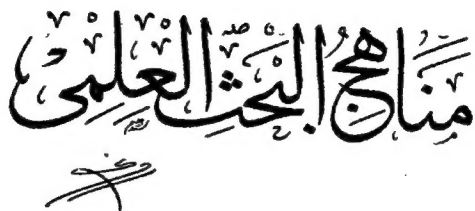 مناهج البحث العلمي